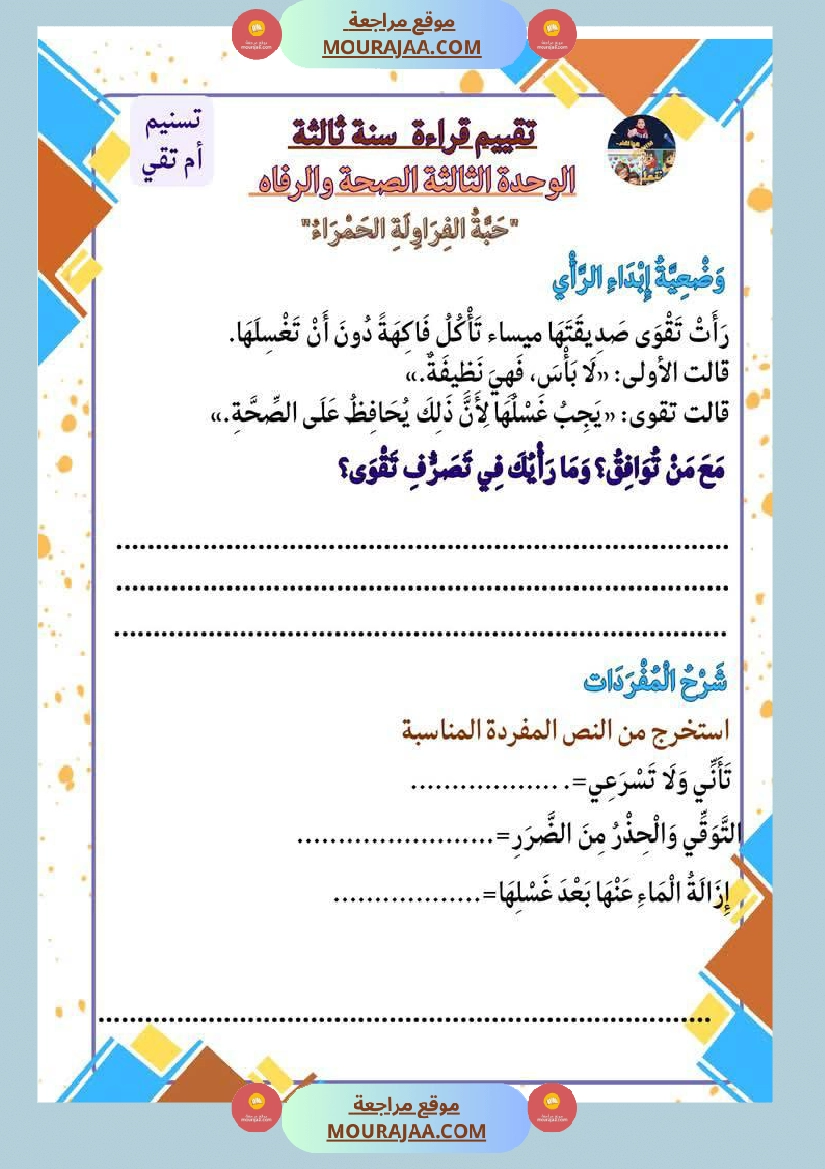 موقع مراجعة
MOURAJAA.COM
تسنيم
أم تقي
تقييم قراءة سنة ثالثة
الوحدة الثالثة الصحة والرفاه
"حَبَّةُ الفِرَاوِلَةِ الحَمْرَاءُ"
وَضْعِيَّةُ إِبْدَاءِ الرَّأْيِ
رَأَتْ تَقْوَى صَدِيقَتَهَا ميساء تَأْكُلُ فَاكِهَةً دُونَ أَنْ تَغْسِلَهَا.
قالت الأولى: «لَا بَأْسَ، فَهِيَ نَظِيفَةٌ.»
قالت تقوى: «يَجِبُ غَسْلُهَا لِأَنَّ ذَلِكَ يُحَافِظُ عَلَى الصِّحَّةِ.»
مَعَ مَنْ تُوَافِقُ؟ وَمَا رَأْيُكَ فِي تَصَرُّفِ تَقْوَى؟
شَرْحُ الْمُفْرَدَات
استخرج من النص المفردة المناسبة
تَأَنَّي وَلَا تَسْرَعِي=. ..................
التَّوَقِّي وَالْحِذْرُ مِنَ الضَّرَرِ=........................
إِزَالَةُ الْمَاءِ عَنْهَا بَعْدَ غَسْلِهَا=..................
موقع مراجعة
MOURAJAA.COM